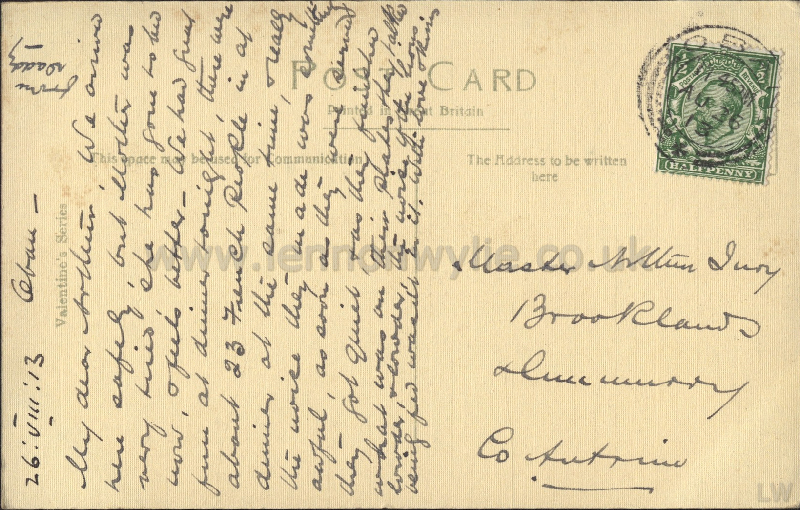 POST CARD
Printed in Great Britain
This space may be used for Communication
The Address to be written
here
Valentine's Series
HALFPENNY
26.VIII.13 Oban –
My dear Arthur, We arrived
here safely but Mother was
very tired, she has gone to bed
now, & feels better – We had great
fun at dinner tonight, there were
about 23 French People in at
dinner at the same time, & really
the noise they made was something
awful, as soon as they were served
they got quiet & as they finished
what was on their plates they talked
louder & louder, the noise of the lions
being fed wasn't in it. With love & kisses
from
Daddy
Master Arthur
Brooklands
Dunmurry
Co Antrim
www.lennonwylie.co.uk
LW